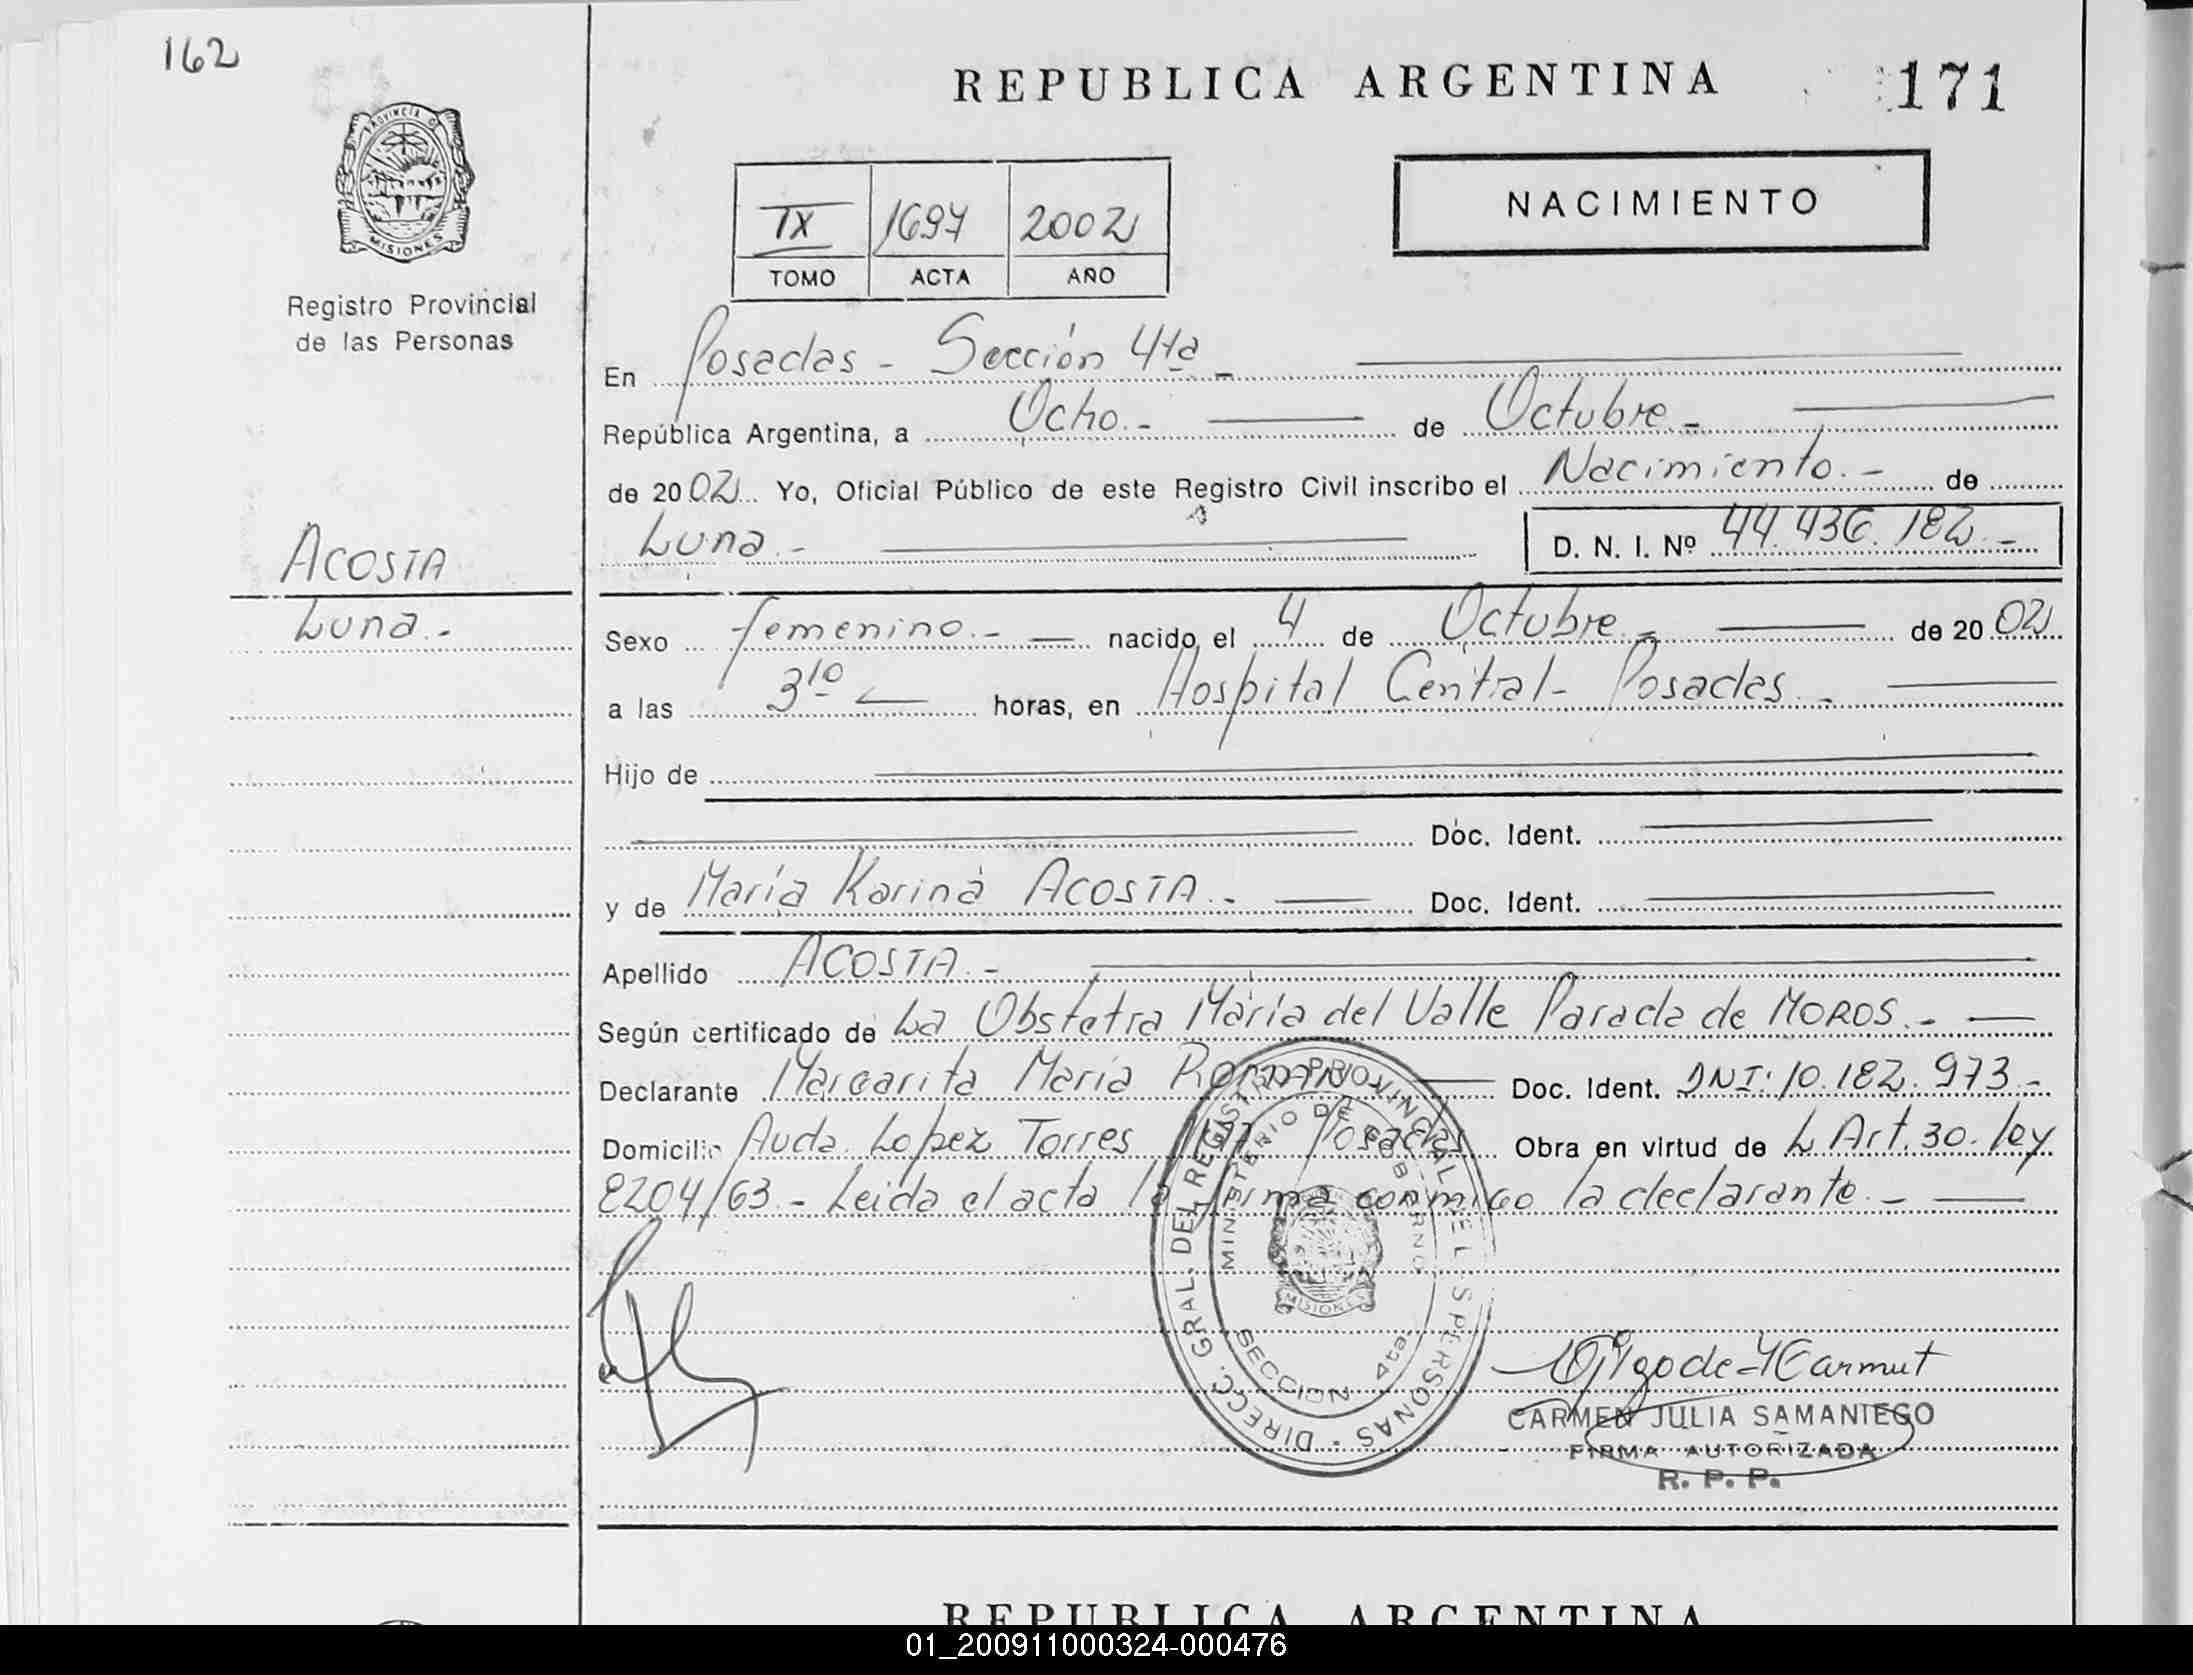 162
REPUBLICA ARGENTINA
171
PROVINCIA D
MISIONES
Registro Provincial
de las Personas
NACIMIENTO
IX 1697 2002
TOMO ACTA AÑO
En Posadas - Sección 4ta -
República Argentina, a Ocho.- de Octubre.-
de 2002 Yo, Oficial Público de este Registro Civil inscribo el Nacimiento.- de
Luna.- D. N. I. Nº 44.436.182.-
ACOSTA
Luna.-
Sexo femenino.- nacido el 4 de Octubre.- de 2002
a las 310 horas, en Hospital Central- Posadas.-
Hijo de
Doc. Ident.
y de María Karina ACOSTA.- Doc. Ident.
Apellido ACOSTA.-
Según certificado de La Obstetra María del Valle Parada de MOROS.-
Declarante Margarita María Doc. Ident. DNI: 10.182.973.-
Domicilio Avda. Lopez Torres Posadas Obra en virtud de L Art. 30. ley
8204/63.- Leida el acta la firma conmigo la declarante.-
DIRECC. GRAL. DEL REGISTRO PROVINCIAL DE LAS PERSONAS
MINISTERIO DE GOBIERNO
MISIONES
SECCION 4ta.
CARMEN JULIA SAMANIEGO
FIRMA AUTORIZADA
R. P. P.
REPUBLICA ARGENTINA
01_200911000324-000476